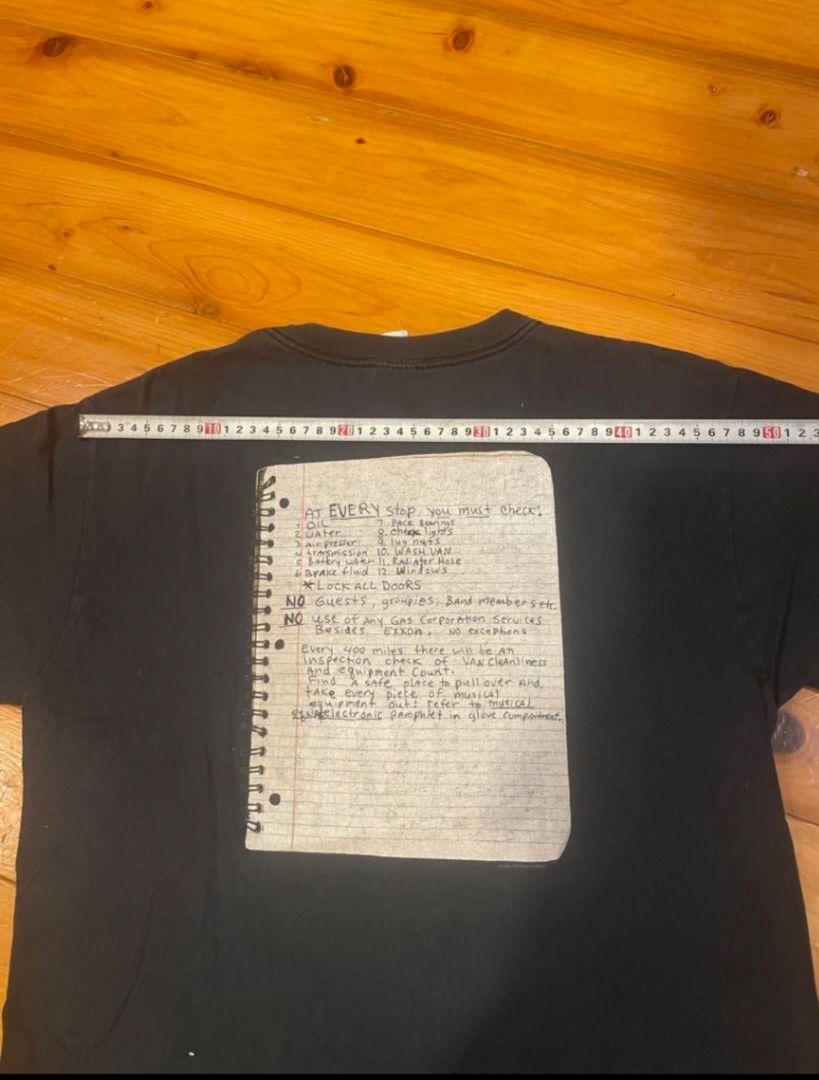 3 4 5 6 7 8 9 10 1 2 3 4 5 6 7 8 9 20 1 2 3 4 5 6 7 8 9 30 1 2 3 4 5 6 7 8 9 40 1 2 3 4 5 6 7 8 9 50 1 2 3
AT EVERY stop you must check:
1 OIL 7. PACK Bearings
2 WATER 8. check lights
3 air presser 9. lug nuts
4 transmission 10. WASH VAN
5 Battery water 11. Radiator Hose
6 Brake fluid 12. Windows
*LOCK ALL DOORS
NO Guests, groupies, Band members etc.
NO use of Any GAS Corporation Services
Besides EXXON. NO exceptions
Every 400 miles there will be An
inspection check of VAN Cleanliness
And equipment Count.
Find A safe place to pull over And
take every piece of musical
equipment out: refer to musical
electronic pamphlet in glove compartment.